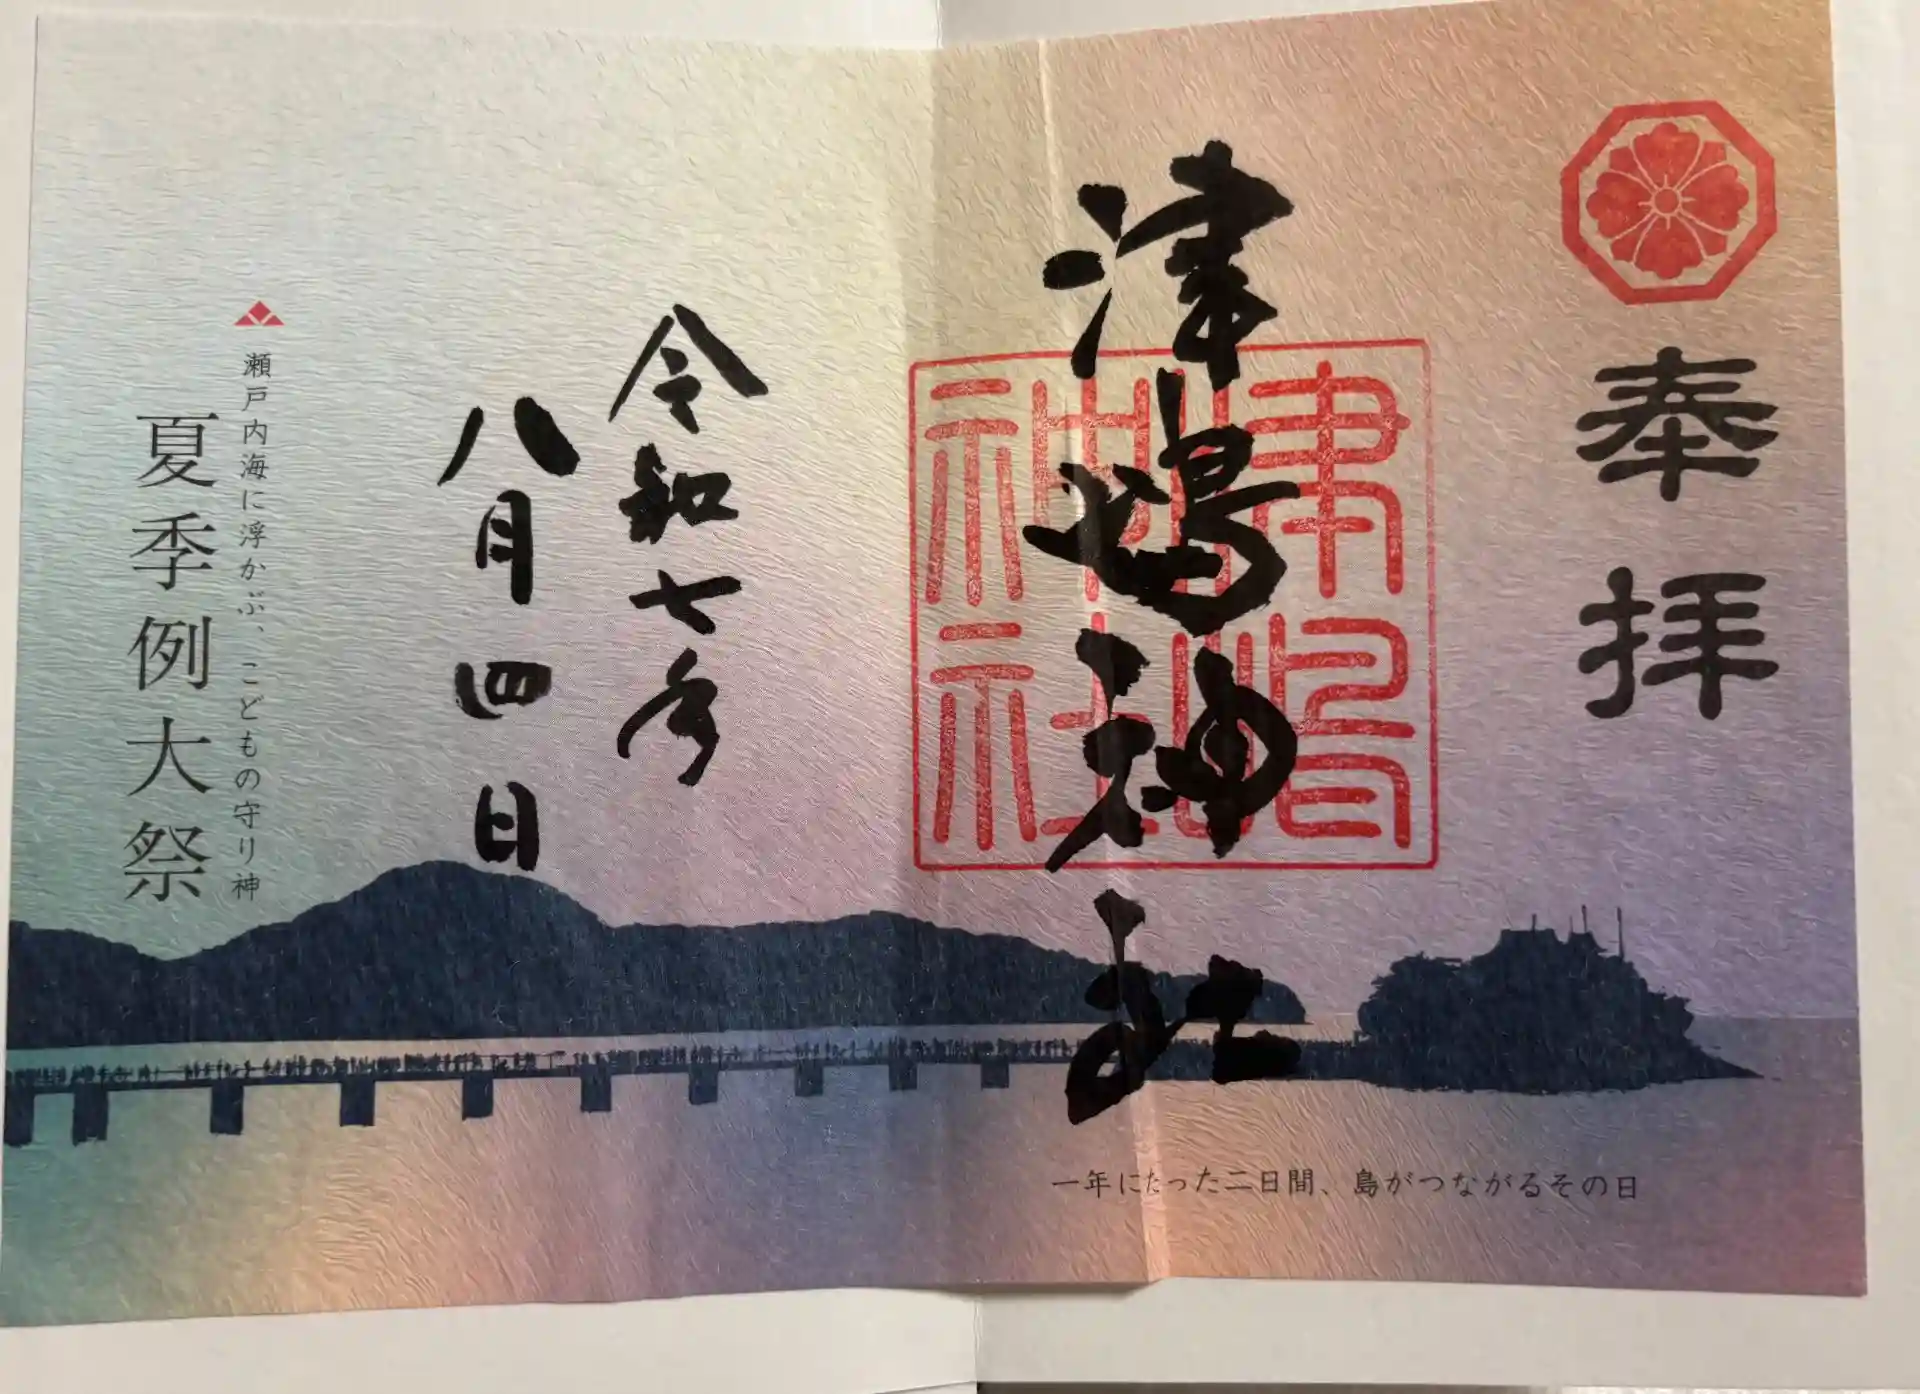 奉拝
津嶋神社
津嶋神社
令和七年
八月四日
瀬戸内海に浮かぶ、こどもの守り神
夏季例大祭
一年にたった二日間、島がつながるその日